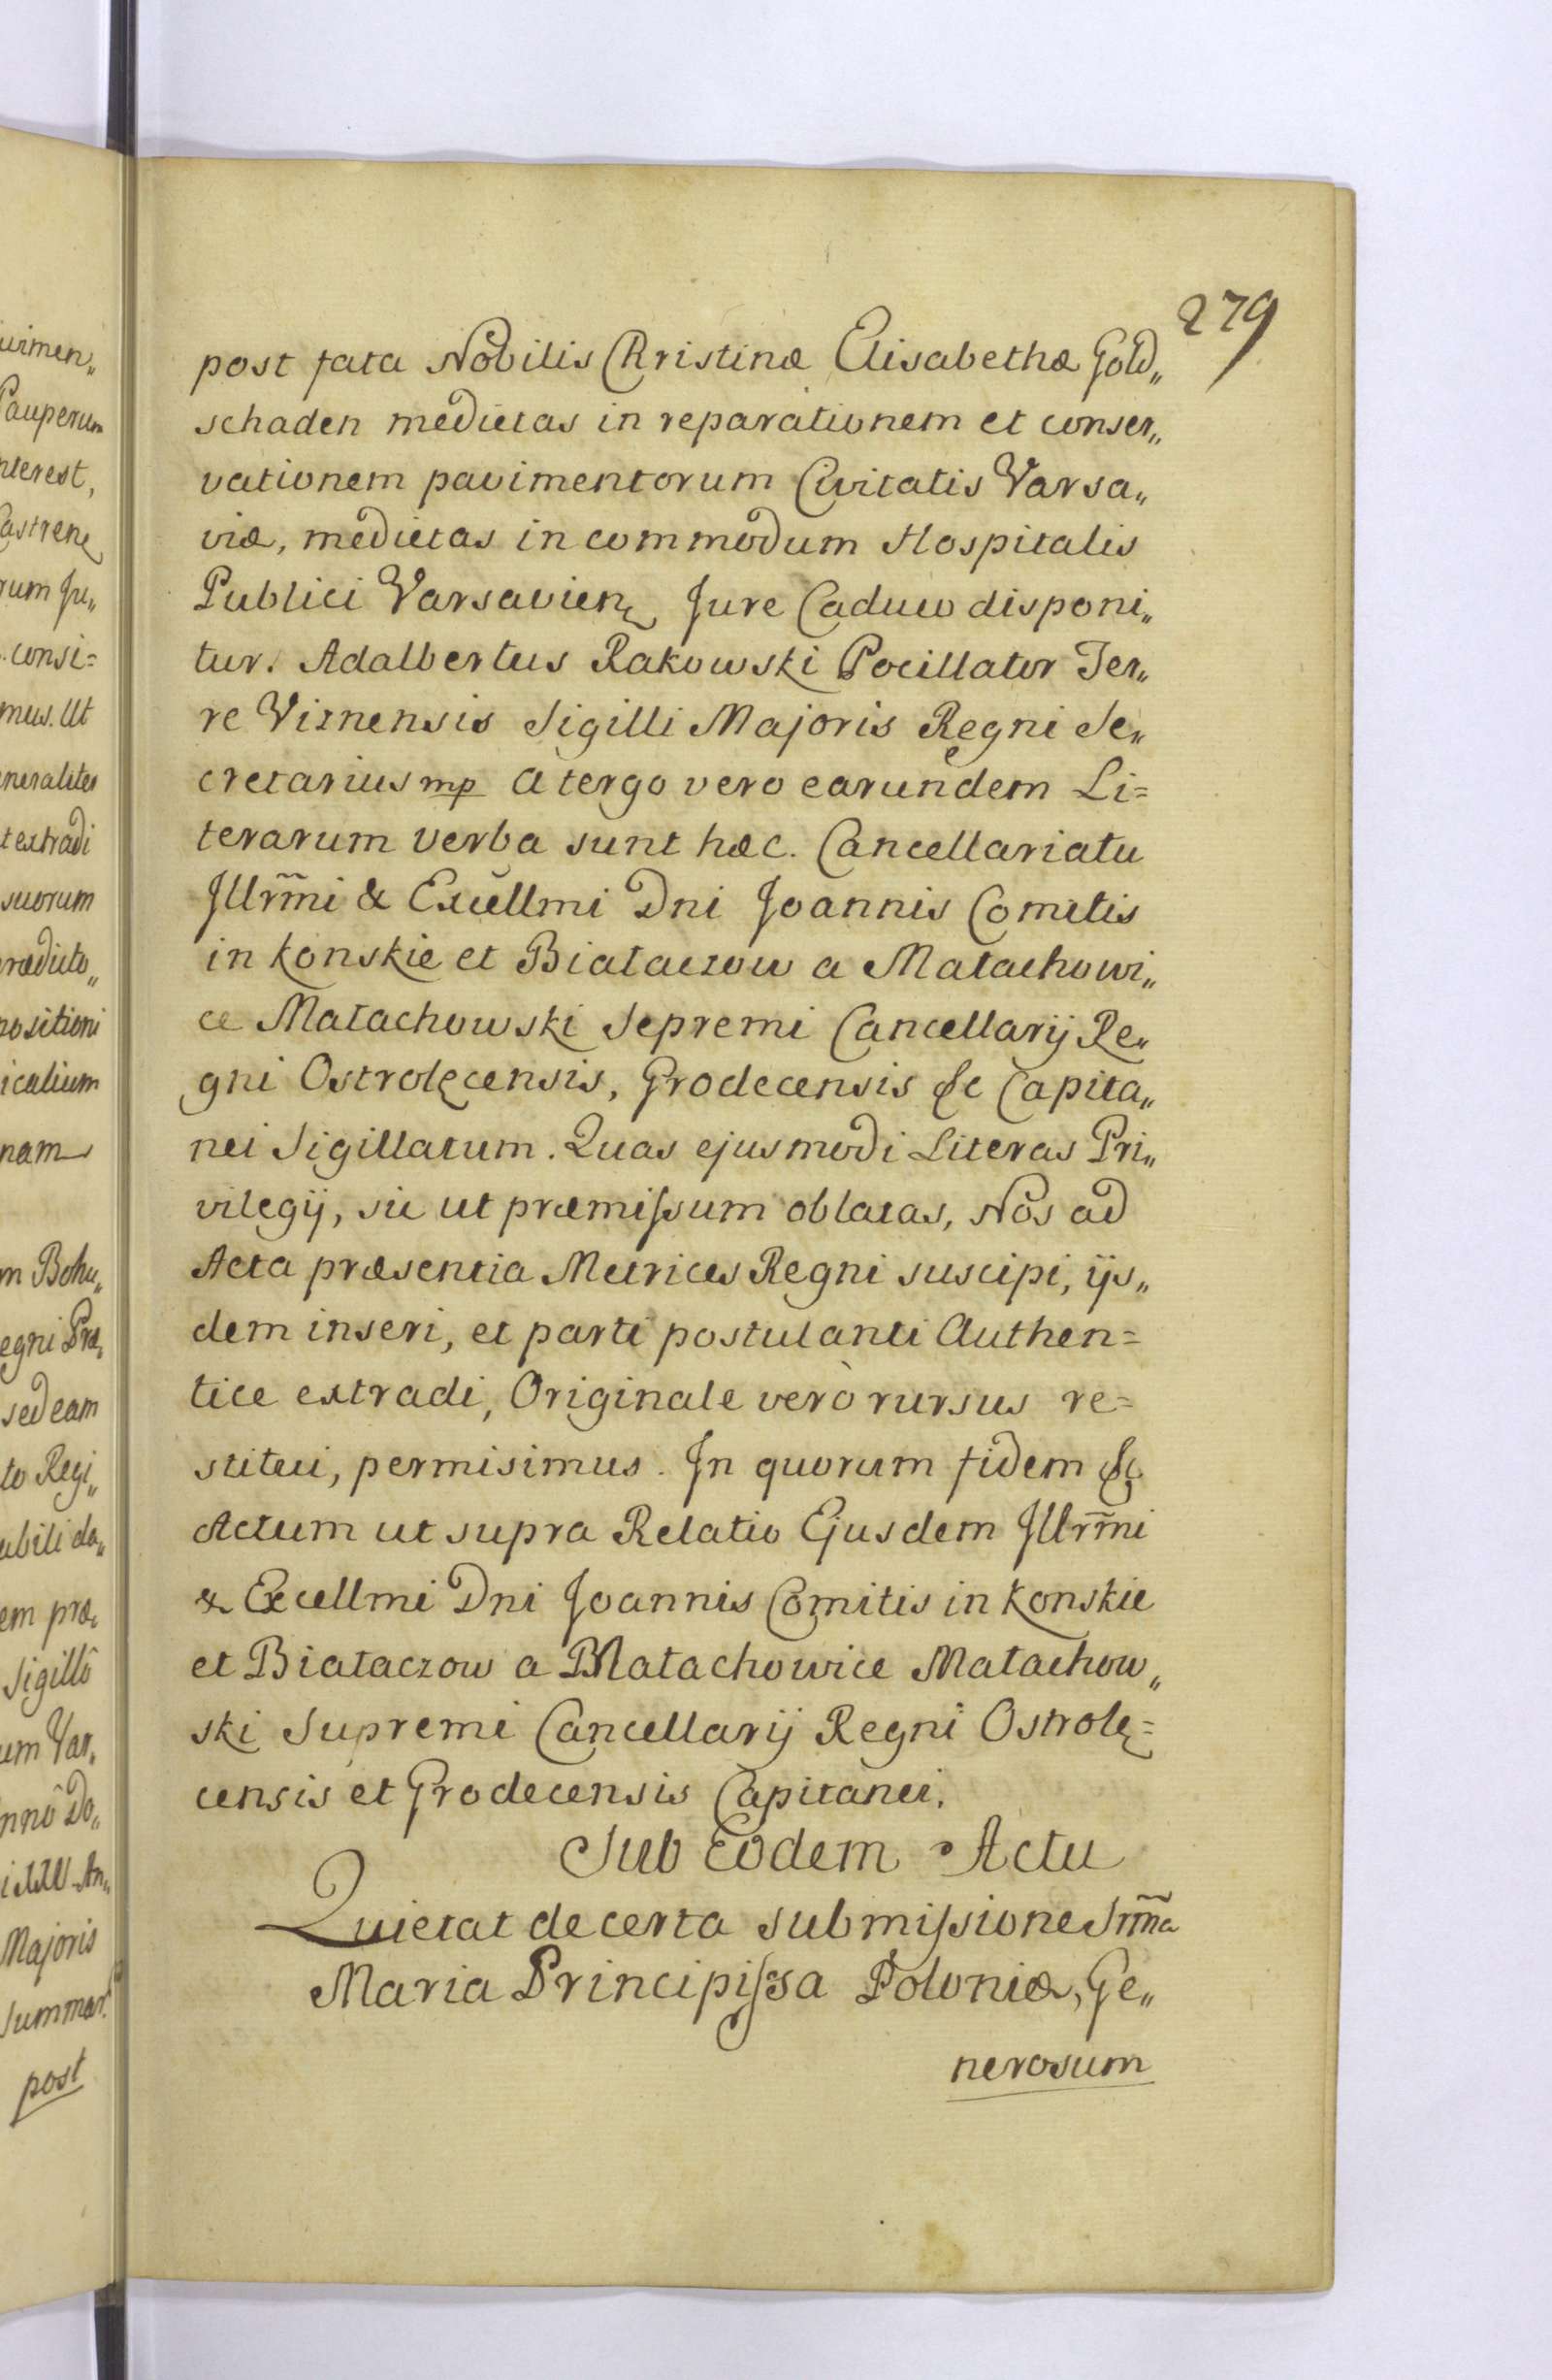 279
post fata Nobilis Christinæ Elisabethæ Gold„
schaden medietas in reparationem et conser„
vationem pavimentorum Civitatis Varsa„
viæ, medietas in commodum Hospitalis
Publici Varsavien Jure Caduco disponi„
tur. Adalbertus Rakowski Pocillator Ter„
re Viznensis Sigilli Majoris Regni Se„
cretarius mp A tergo vero earundem Li=
terarum verba sunt hæc. Cancellariatu
Jllrm̃i & Excellmi Dni Joannis Comitis
in Konskie et Białaczow a Małachowi„
ce Małachowski Sepremi Cancellarij Re„
gni Ostrolęcensis, Grodecensis &c Capita„
nei Sigillatum. Quas ejusmodi Literas Pri„
vilegij, sic ut præmissum oblatas, Nos ad
Acta præsentia Metrices Regni suscipi, ijs„
dem inseri, et parti postulanti Authen=
tice extradi, Originale verò rursus re=
stitui, permisimus. Jn quorum fidem &c
Actum ut supra Relatio Ejusdem Jllrm̃i
& Excellmi Dni Joannis Comitis in Konskie
et Białaczow a Małachowice Małachow„
ski Supremi Cancellarij Regni Ostrolę=
censis et Grodecensis Capitanei.
Sub Eodem Actu
Quietat de certa submissione Srm̃a
Maria Principissa Poloniæ, Ge„
nerosum
uimen„
Pauperum
nterest,
Castren
rum Ju„
consi=
mus. Ut
eneraliter
t extradi
suorum
rædicto„
positioni
icalium
nam
m Bohu„
egni Præ„
sed eam
to Regi„
ubili do„
em præ„
Sigillô
um Var„
nnô Do„
An„
Majoris
Summar.
post